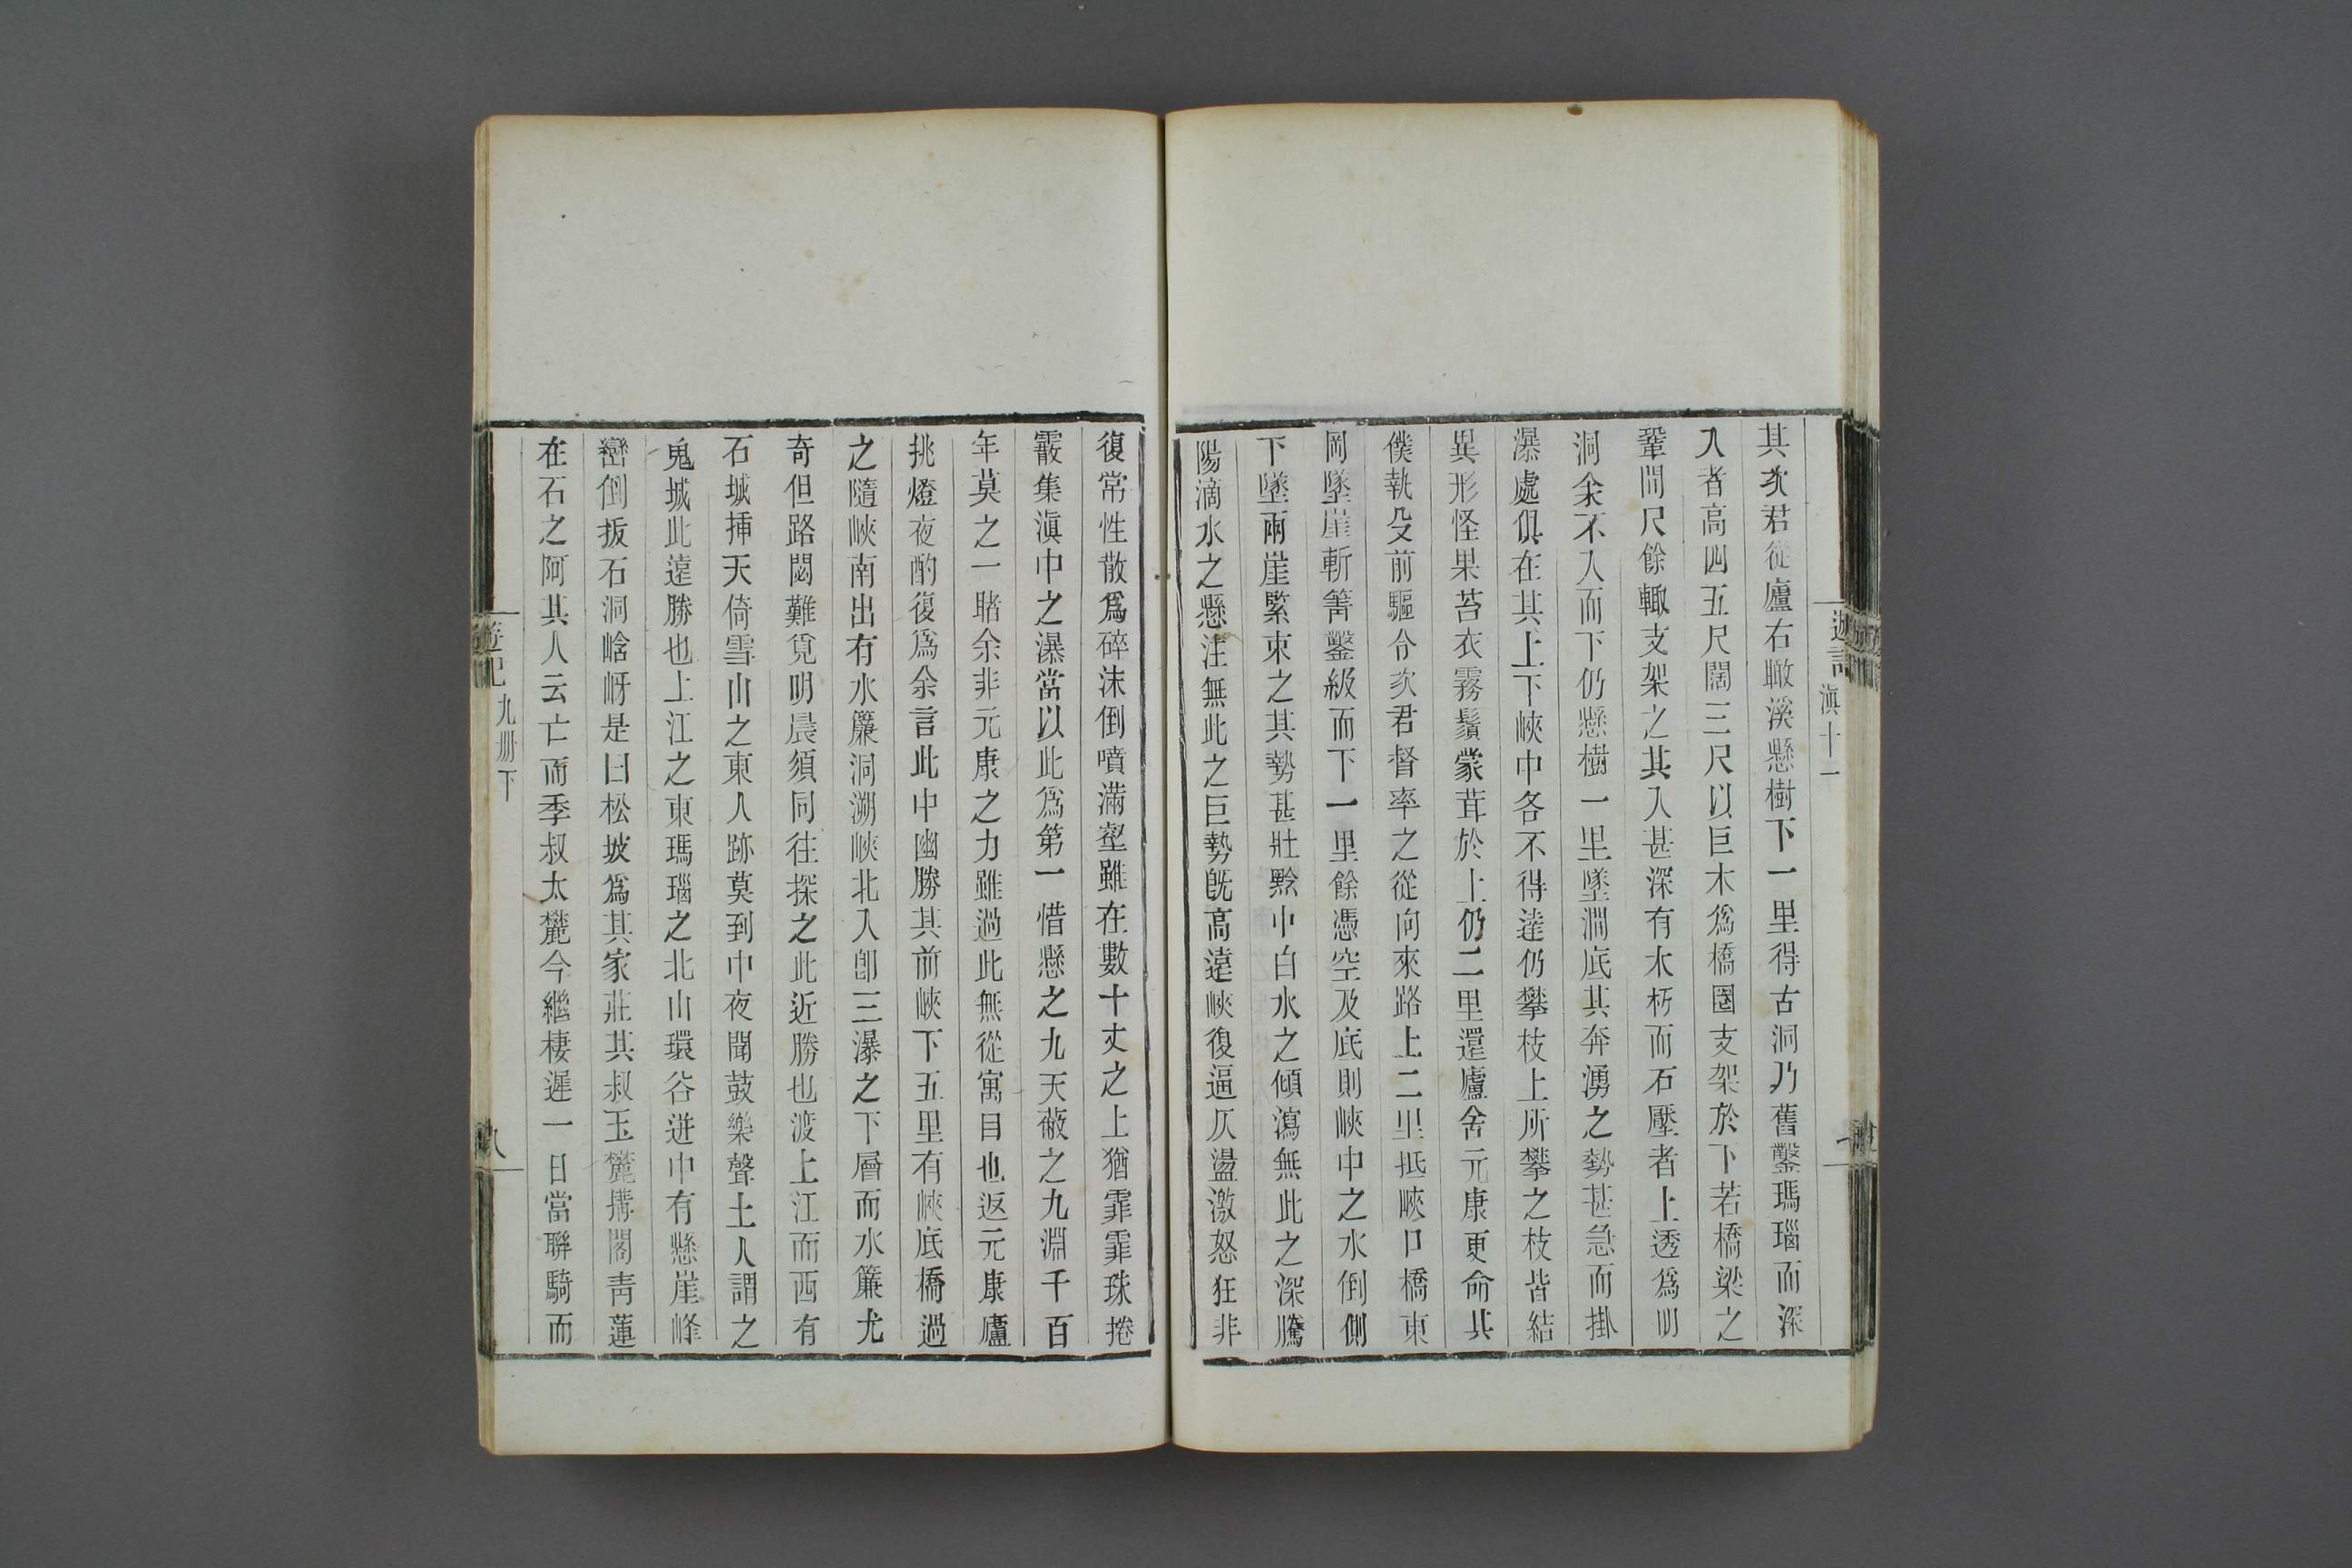 遊記
滇十一
其次君從廬右瞰溪懸樹下一里得古洞乃舊鑿瑪瑙而深
入者高四五尺闊三尺以巨木爲橋圈支架於下若橋梁之
鞏間尺餘輙支架之其入甚深有木朽而石壓者上透爲明
洞余不入而下仍懸樹一里墜澗底其奔湧之勢甚急而掛
瀑處俱在其上下峽中各不得達仍攀枝上所攀之枝皆結
異形怪果苔衣霧鬚蒙茸於上仍二里還廬舍元康更命其
僕執殳前驅令次君督率之從向來路上二里抵峽口橋東
岡墜崖斬箐鑿級而下一里餘憑空及底則峽中之水倒側
下墜兩崖緊束之其勢甚壯黔中白水之傾瀉無此之深騰
陽滴水之懸注無此之巨勢旣高遠峽復逼仄盪激怒狂非
復常性散爲碎沫倒噴滿壑雖在數十丈之上猶霏霏珠捲
霰集滇中之瀑當以此爲第一惜懸之九天蔽之九淵千百
年莫之一睹余非元康之力雖過此無從寓目也返元康廬
挑燈夜酌復爲余言此中幽勝其前峽下五里有峽底橋過
之隨峽南出有水簾洞溯峽北入卽三瀑之下層而水簾尤
奇但路閟難覓明晨須同往探之此近勝也渡上江而西有
石城揷天倚雪山之東人跡莫到中夜聞鼓樂聲土人謂之
鬼城此遠勝也上江之東瑪瑙之北山環谷迸中有懸崖峰
巒倒扳石洞岭岈是曰松坡爲其家莊其叔玉麓搆閣靑蓮
在石之阿其人云亡而季叔太麓今繼棲遲一日當聯騎而
遊記
九册下
八